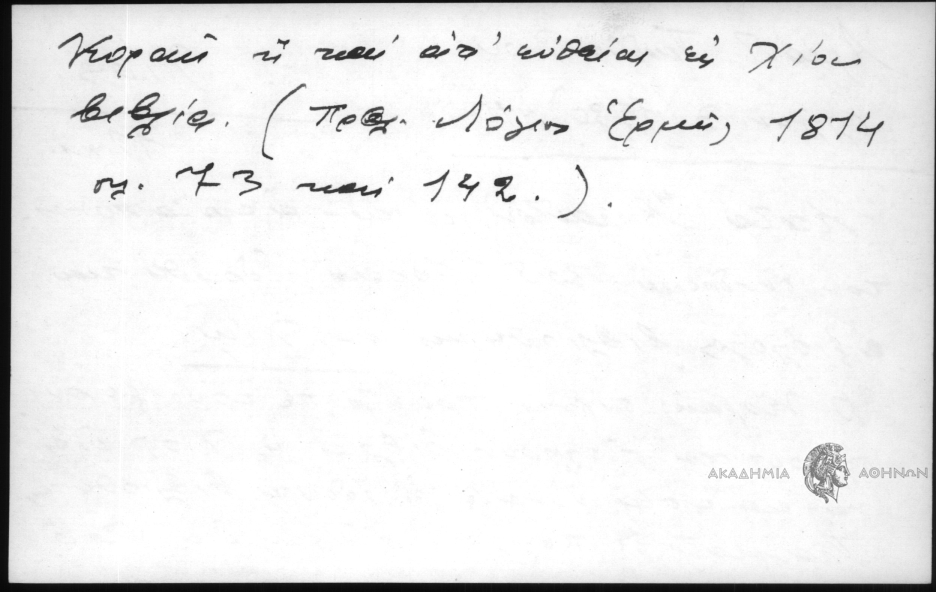 Κοραῆ ἤ καί ἀπ' εὐθείας εἰς Χίον
βιβλία. (Πρβλ. Λόγιος Ἑρμῆς 1814
σελ. 73 καί 142.).
ΑΚΑΔΗΜΙΑ ΑΘΗΝΩΝ